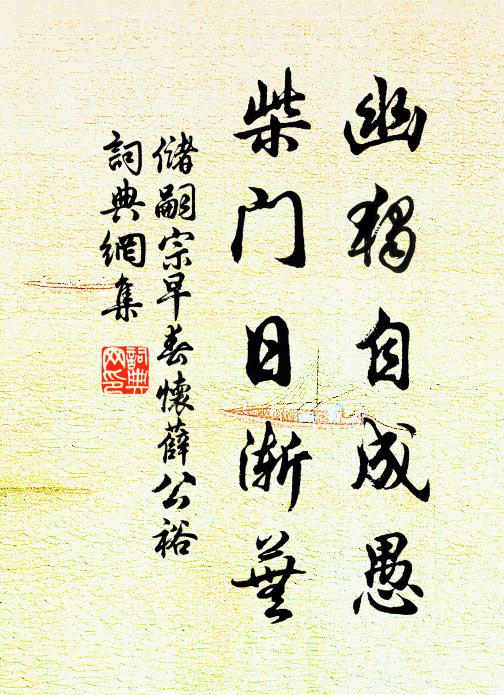 幽獨自成愚
柴门日漸蕪
儲嗣宗早春懷薛公裕
詞典網集
詞典
网印